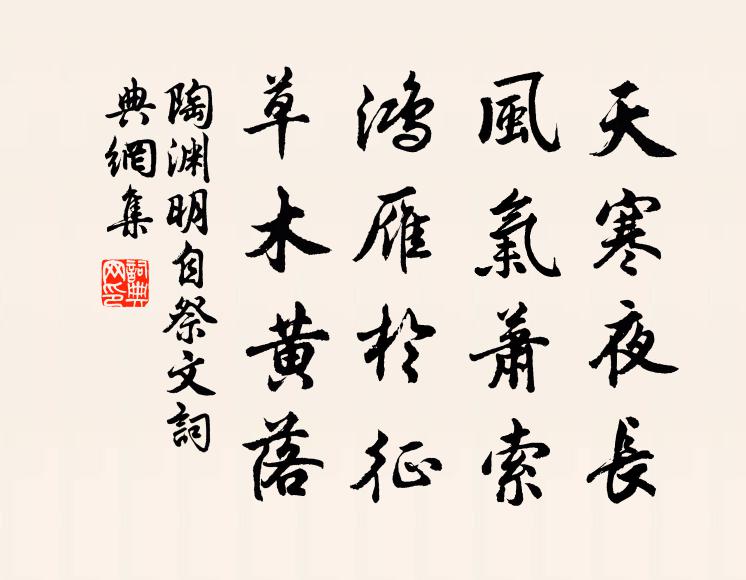 天寒夜長
風氣蕭索
鴻雁於征
草木黄落
陶淵明自祭文詞
典網集
詞典
网印